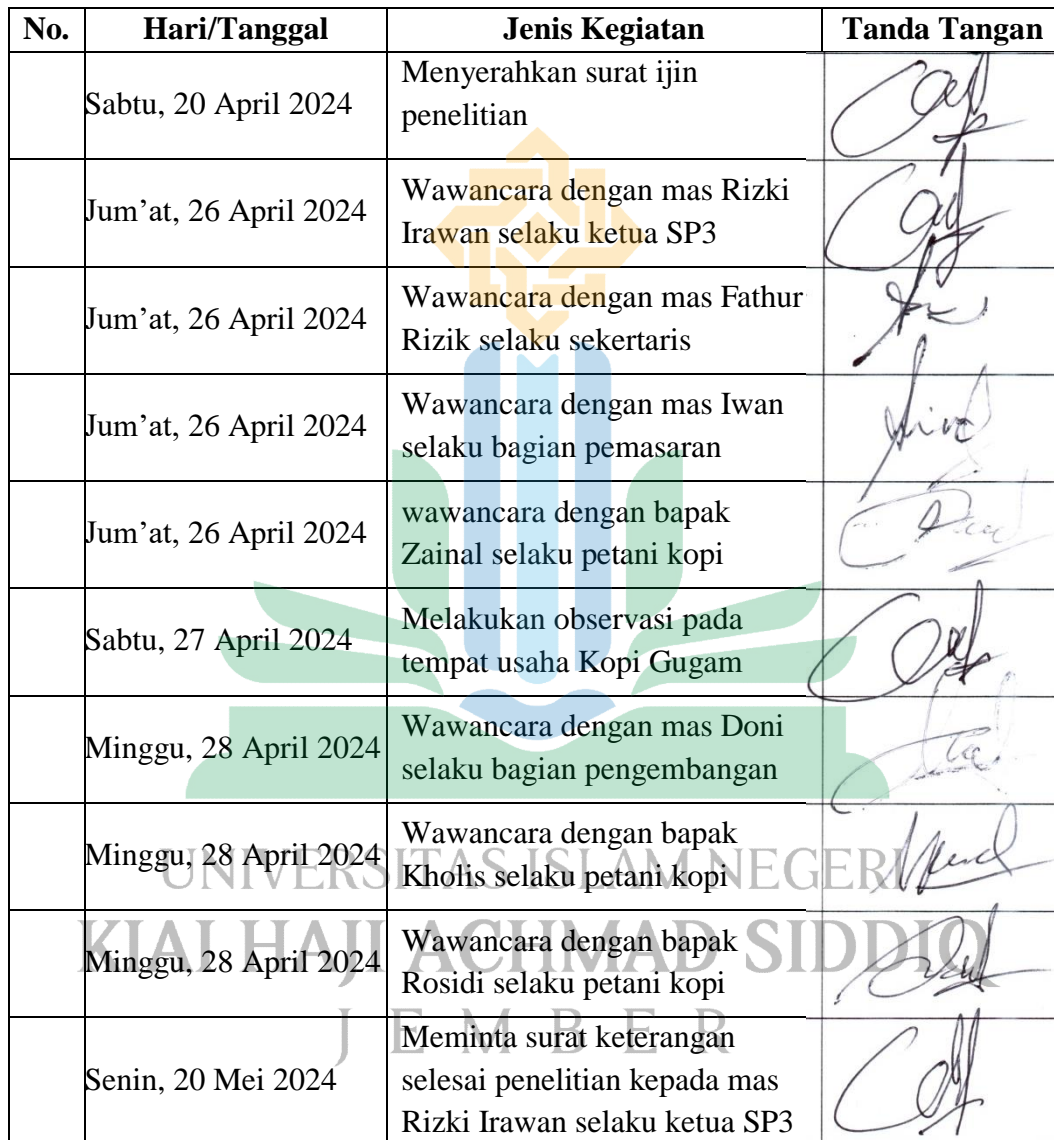 No. Hari/Tanggal Jenis Kegiatan Tanda Tangan
Sabtu, 20 April 2024
Menyerahkan surat ijin
penelitian
Jum’at, 26 April 2024
Wawancara dengan mas Rizki
Irawan selaku ketua SP3
Jum’at, 26 April 2024
Wawancara dengan mas Fathur
Rizik selaku sekertaris
Jum’at, 26 April 2024
Wawancara dengan mas Iwan
selaku bagian pemasaran
Jum’at, 26 April 2024
wawancara dengan bapak
Zainal selaku petani kopi
Sabtu, 27 April 2024
Melakukan observasi pada
tempat usaha Kopi Gugam
Minggu, 28 April 2024
Wawancara dengan mas Doni
selaku bagian pengembangan
Minggu, 28 April 2024
Wawancara dengan bapak
Kholis selaku petani kopi
Minggu, 28 April 2024
Wawancara dengan bapak
Rosidi selaku petani kopi
Senin, 20 Mei 2024
Meminta surat keterangan
selesai penelitian kepada mas
Rizki Irawan selaku ketua SP3
UNIVERSITAS ISLAM NEGERI
KIAI HAJI ACHMAD SIDDIQ
JEMBER